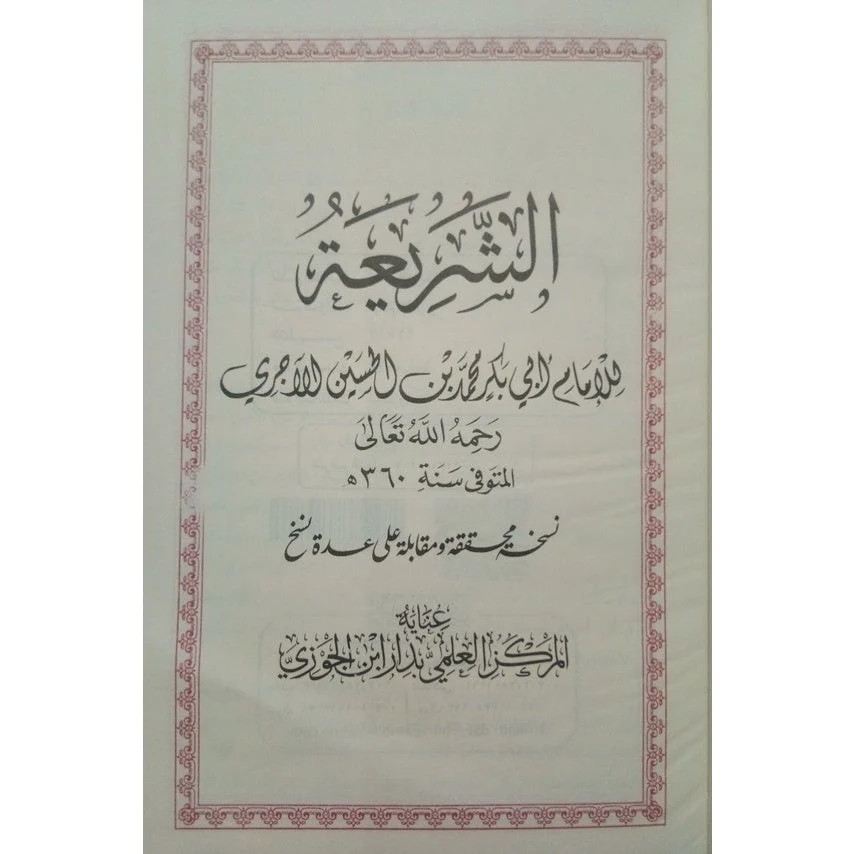 الشَّرِيعَةُ
للإمام أبي بكر محمد بن الحسين الآجري
رَحِمَهُ اللَّهُ تَعَالَىٰ
المتوفى سَنَةِ ٣٦٠ هـ
نسخة محققة ومقابلة على عدة نسخ
عِنَايَةُ
المَركَز العِلمِيّ بِدَار ابْن الجَوْزِيّ